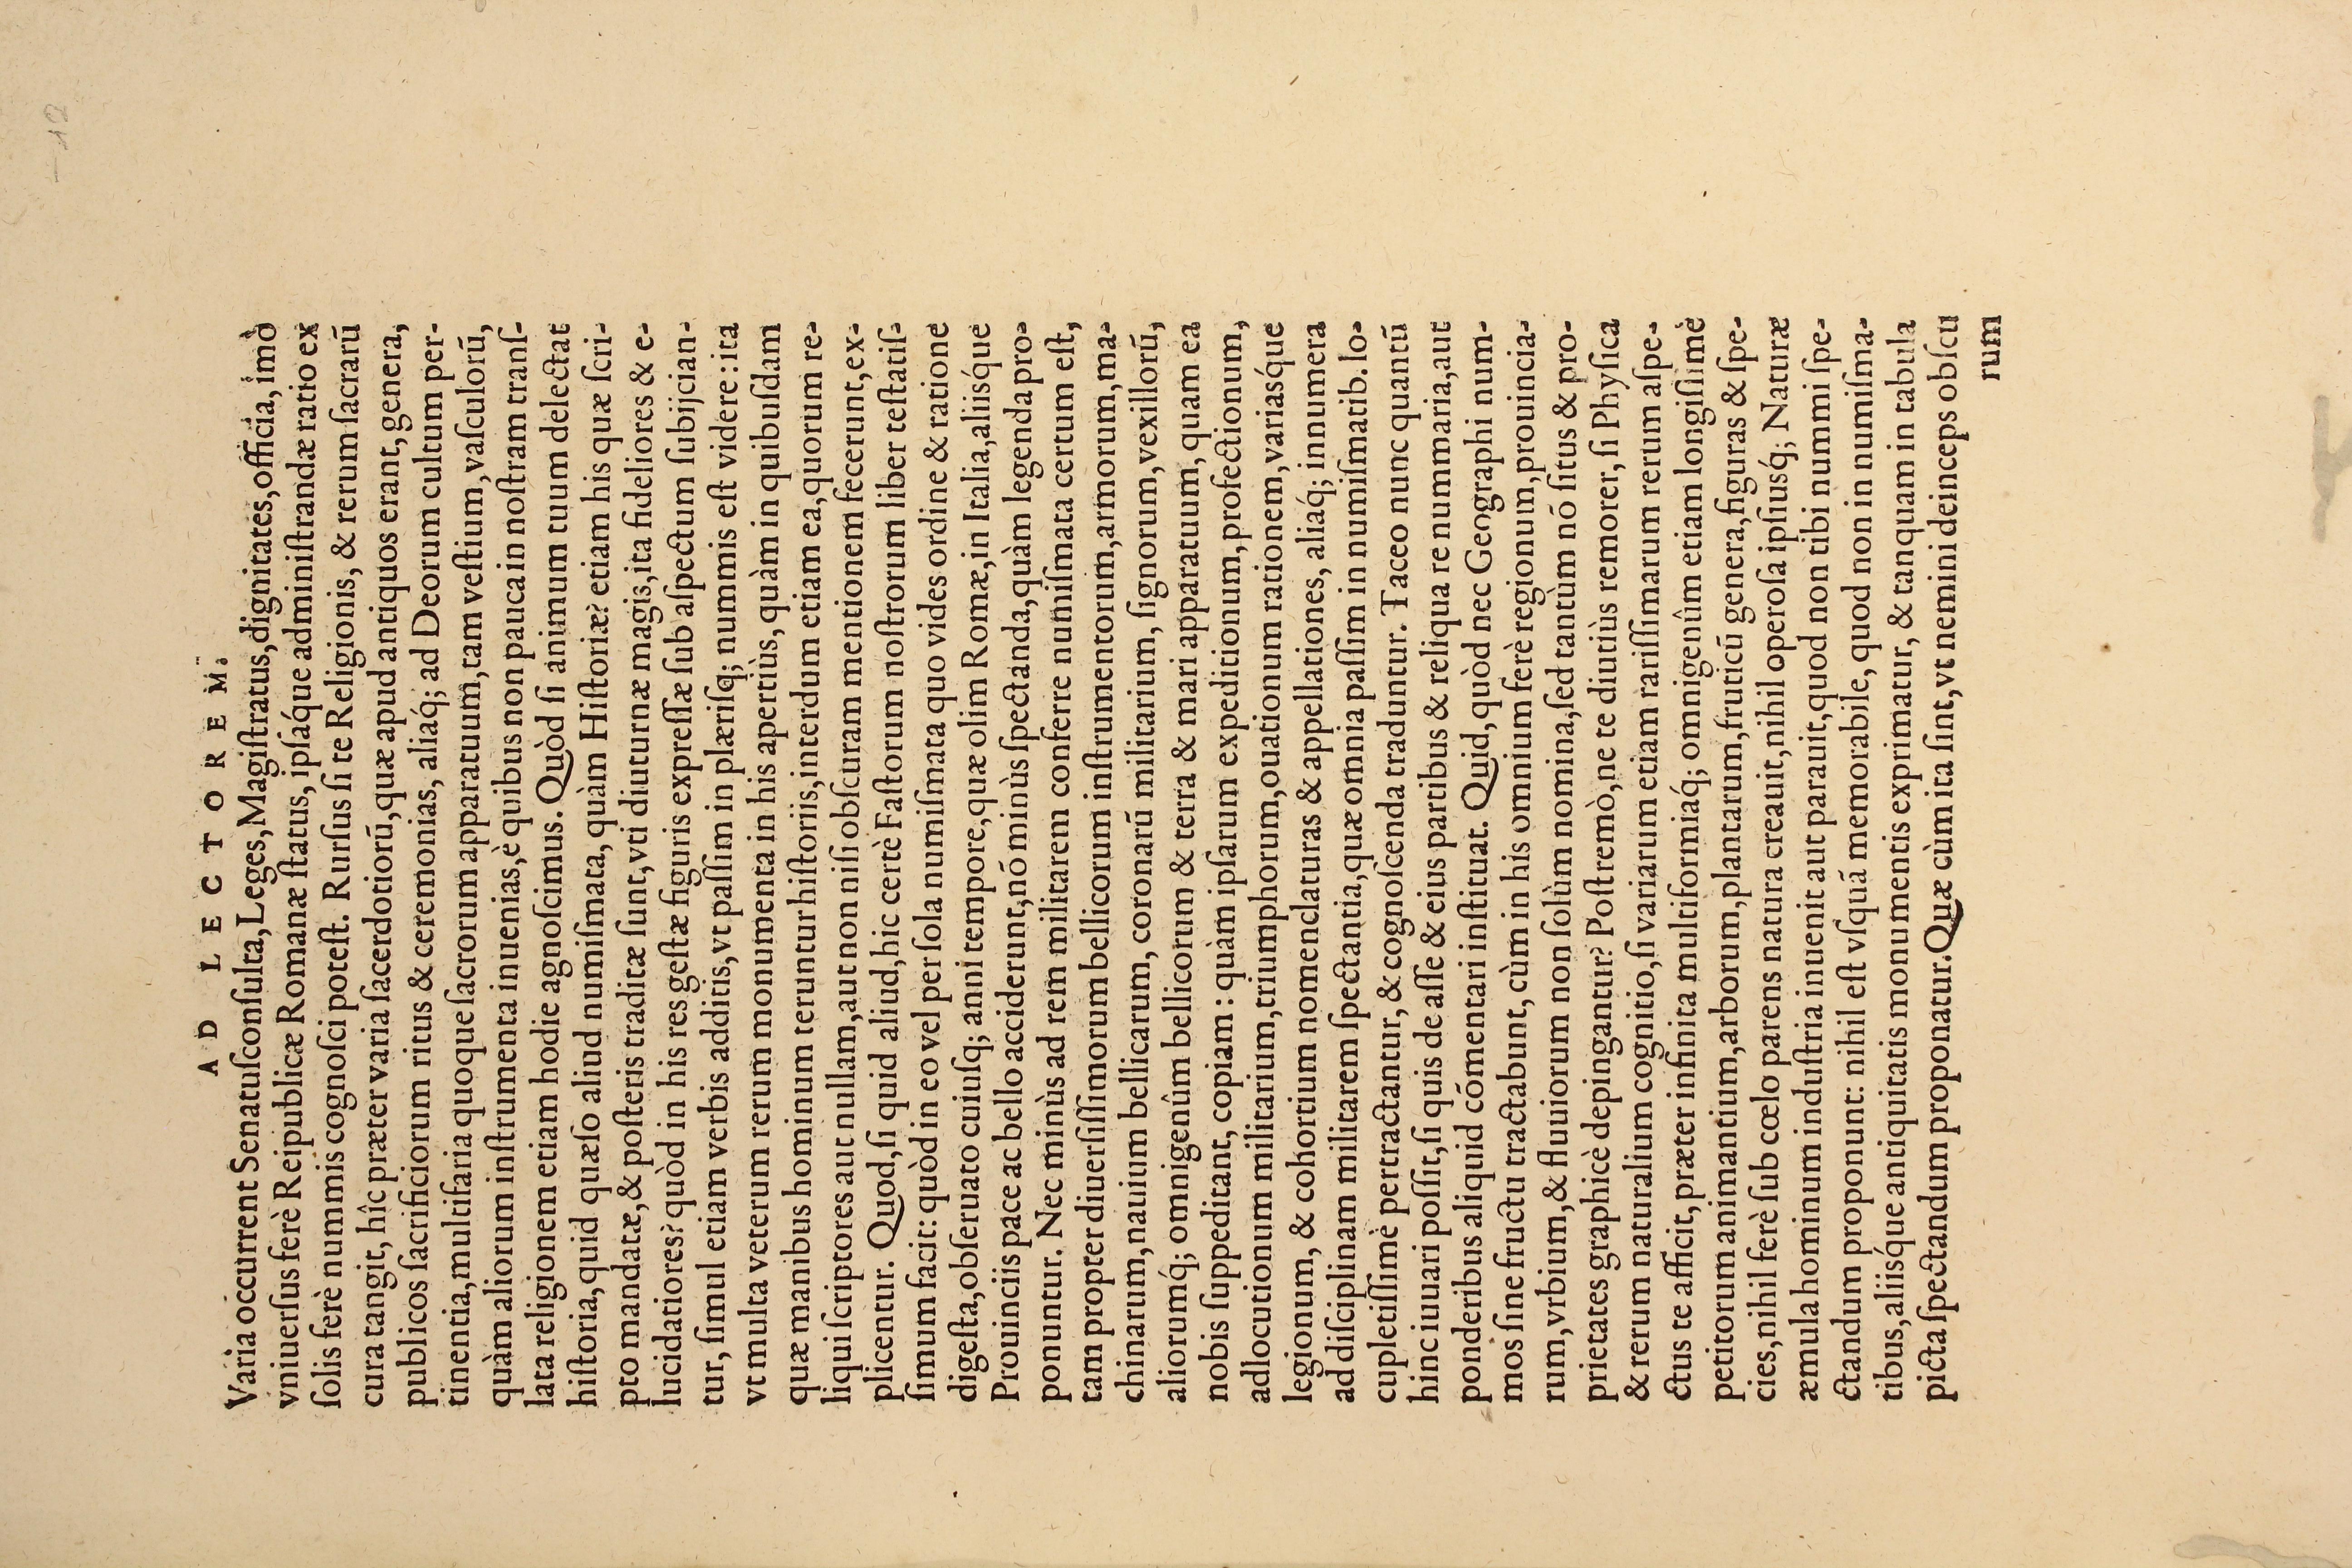 AD LECTOREM.
Varia occurrent Senatuſconſulta, Leges, Magiſtratus, dignitates, officia, imò
vniuerſus ferè Reipublicæ Romanæ ſtatus, ipſáque adminiſtrandæ ratio ex
ſolis ferè nummis cognoſci poteſt. Rurſus ſi te Religionis, & rerum ſacrarū
cura tangit, hîc præter varia ſacerdotiorū, quæ apud antiquos erant, genera,
publicos ſacrificiorum ritus & ceremonias, aliaq́; ad Deorum cultum per-
tinentia, multifaria quoque ſacrorum apparatuum, tam veſtium, vaſculorū,
quàm aliorum inſtrumenta inuenias, è quibus non pauca in noſtram tranſ-
lata religionem etiam hodie agnoſcimus. Quòd ſi animum tuum delectat
hiſtoria, quid quæſo aliud numiſmata, quàm Hiſtoriæ? etiam his quæ ſcri-
pto mandatæ, & poſteris traditæ ſunt, vti diuturnæ magis, ita fideliores & e-
lucidatiores? quòd in his res geſtæ figuris expreſſæ ſub aſpectum ſubijcian-
tur, ſimul etiam verbis additis, vt paſſim in plæriſq; nummis eſt videre: ita
vt multa veterum rerum monumenta in his apertiùs, quàm in quibuſdam
quæ manibus hominum teruntur hiſtoriis, interdum etiam ea, quorum re-
liqui ſcriptores aut nullam, aut non niſi obſcuram mentionem fecerunt, ex-
plicentur. Quod, ſi quid aliud, hic certè Faſtorum noſtrorum liber teſtatiſ-
ſimum facit: quòd in eo vel per ſola numiſmata quo vides ordine & ratione
digeſta, obſeruato cuiuſq; anni tempore, quæ olim Romæ, in Italia, aliiſque
Prouinciis pace ac bello acciderunt, nō minùs ſpectanda, quàm legenda pro-
ponuntur. Nec minùs ad rem militarem conferre numiſmata certum eſt,
tam propter diuerſiſſimorum bellicorum inſtrumentorum, armorum, ma-
chinarum, nauium bellicarum, coronarū militarium, ſignorum, vexillorū,
aliorumq́; omnigenûm bellicorum & terra & mari apparatuum, quam ea
nobis ſuppeditant, copiam: quàm ipſarum expeditionum, profectionum,
adlocutionum militarium, triumphorum, ouationum rationem, variaſque
legionum, & cohortium nomenclaturas & appellationes, aliaq́; innumera
ad diſciplinam militarem ſpectantia, quæ omnia paſſim in numiſmatib. lo-
cupletiſſimè pertractantur, & cognoſcenda traduntur. Taceo nunc quantū
hinc iuuari poſſit, ſi quis de aſſe & eius partibus & reliqua re nummaria, aut
ponderibus aliquid cōmentari inſtituat. Quid, quòd nec Geographi num-
mos ſine fructu tractabunt, cùm in his omnium ferè regionum, prouincia-
rum, vrbium, & fluuiorum non ſolùm nomina, ſed tantùm nō ſitus & pro-
prietates graphicè depingantur? Poſtremò, ne te diutiùs remorer, ſi Phyſica
& rerum naturalium cognitio, ſi variarum etiam rariſſimarum rerum aſpe-
ctus te afficit, præter infinita multiformiaq́; omnigenûm etiam longiſſimè
petitorum animantium, arborum, plantarum, fruticū genera, figuras & ſpe-
cies, nihil ferè ſub cœlo parens natura creauit, nihil operoſa ipſiuſq́; Naturæ
æmula hominum induſtria inuenit aut parauit, quod non tibi nummi ſpe-
ctandum proponunt: nihil eſt vſquā memorabile, quod non in numiſma-
tibus, aliiſque antiquitatis monumentis exprimatur, & tanquam in tabula
picta ſpectandum proponatur. Quæ cùm ita ſint, vt nemini deinceps obſcu
rum